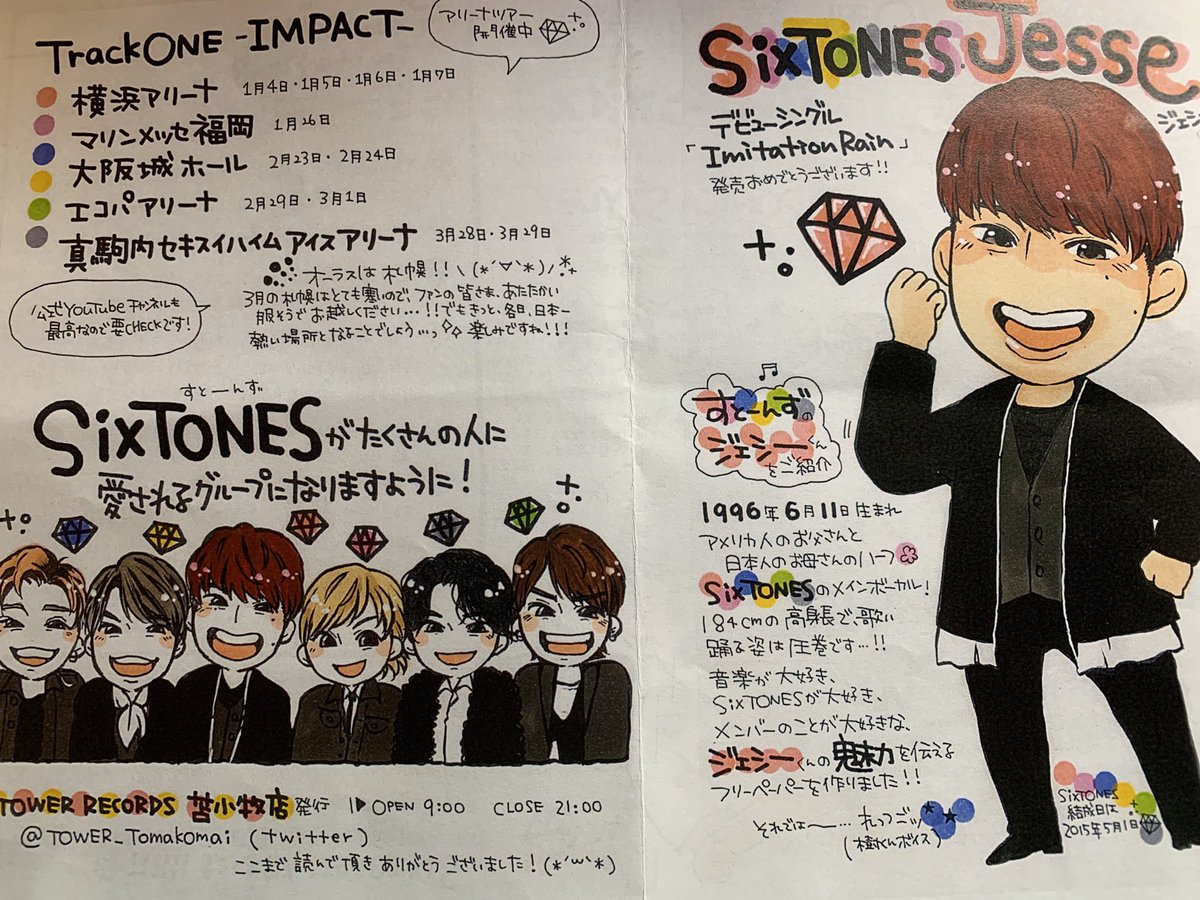 TrackONE -IMPACT-
アリーナツアー
開催中
横浜アリーナ 1月4日・1月5日・1月6日・1月7日
マリンメッセ福岡 1月26日
大阪城ホール 2月23日・2月24日
エコパアリーナ 2月29日・3月1日
真駒内セキスイハイムアイスアリーナ 3月28日・3月29日
オーラスは札幌!!\(*´∀`*)/
3月の札幌はとても寒いので、ファンの皆さま、あたたかい
服そうでお越しください…!!でもきっと、各日、日本一
熱い場所となることでしょう…っ 楽しみですね!!!
公式YouTubeチャンネルも
最高なので要CHECKです!
すとーんず
SixTONESがたくさんの人に
愛されるグループになりますように!
TOWER RECORDS 苫小牧店発行 OPEN 9:00 CLOSE 21:00
@TOWER_Tomakomai (twitter)
ここまで読んで頂きありがとうございました!(*´w`*)
SixTONES Jesse
ジェシ
デビューシングル
「Imitation Rain」
発売おめでとうございます!!
すとーんずの
ジェシーくん
をご紹介
1996年6月11日生まれ
アメリカ人のお父さんと
日本人のお母さんのハーフ
SixTONESのメインボーカル!
184cmの高身長で、歌い
踊る姿は圧巻です…!!
音楽が大好き、
SixTONESが大好き、
メンバーのことが大好きな、
ジェシーくんの魅力を伝える
フリーペーパーを作りました!!
それでは〜… れっつごッ
(樹くんボイス)
SixTONES
結成日は
2015年5月1日